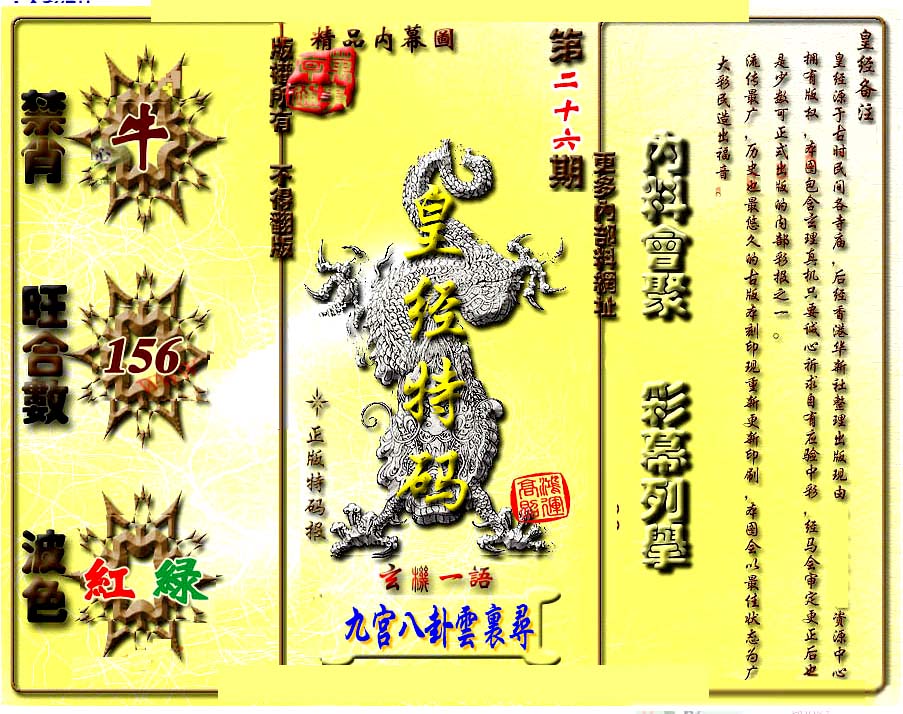 禁肖
牛
旺合數
156
波色
紅 綠
版權所有 不得翻版
精品内幕圖
皇经特码
正版特码报
鴻運高照
玄機一語
九宫八卦雲裏尋
第二十六期
更多内部料網址
内料會聚 彩幕列舉
皇经备注
皇经源于古时民间各寺庙,后经香港华新社整理出版现由 资源中心
拥有版权,本图包含玄理真机只要诚心祈求自有应验中彩,经马会审定更正后也
是少数可正式出版的内部彩报之一。
流传最广,历史也最悠久的古版本刻印现重新更新印刷,本图会以最佳状态为广
大彩民造出福音